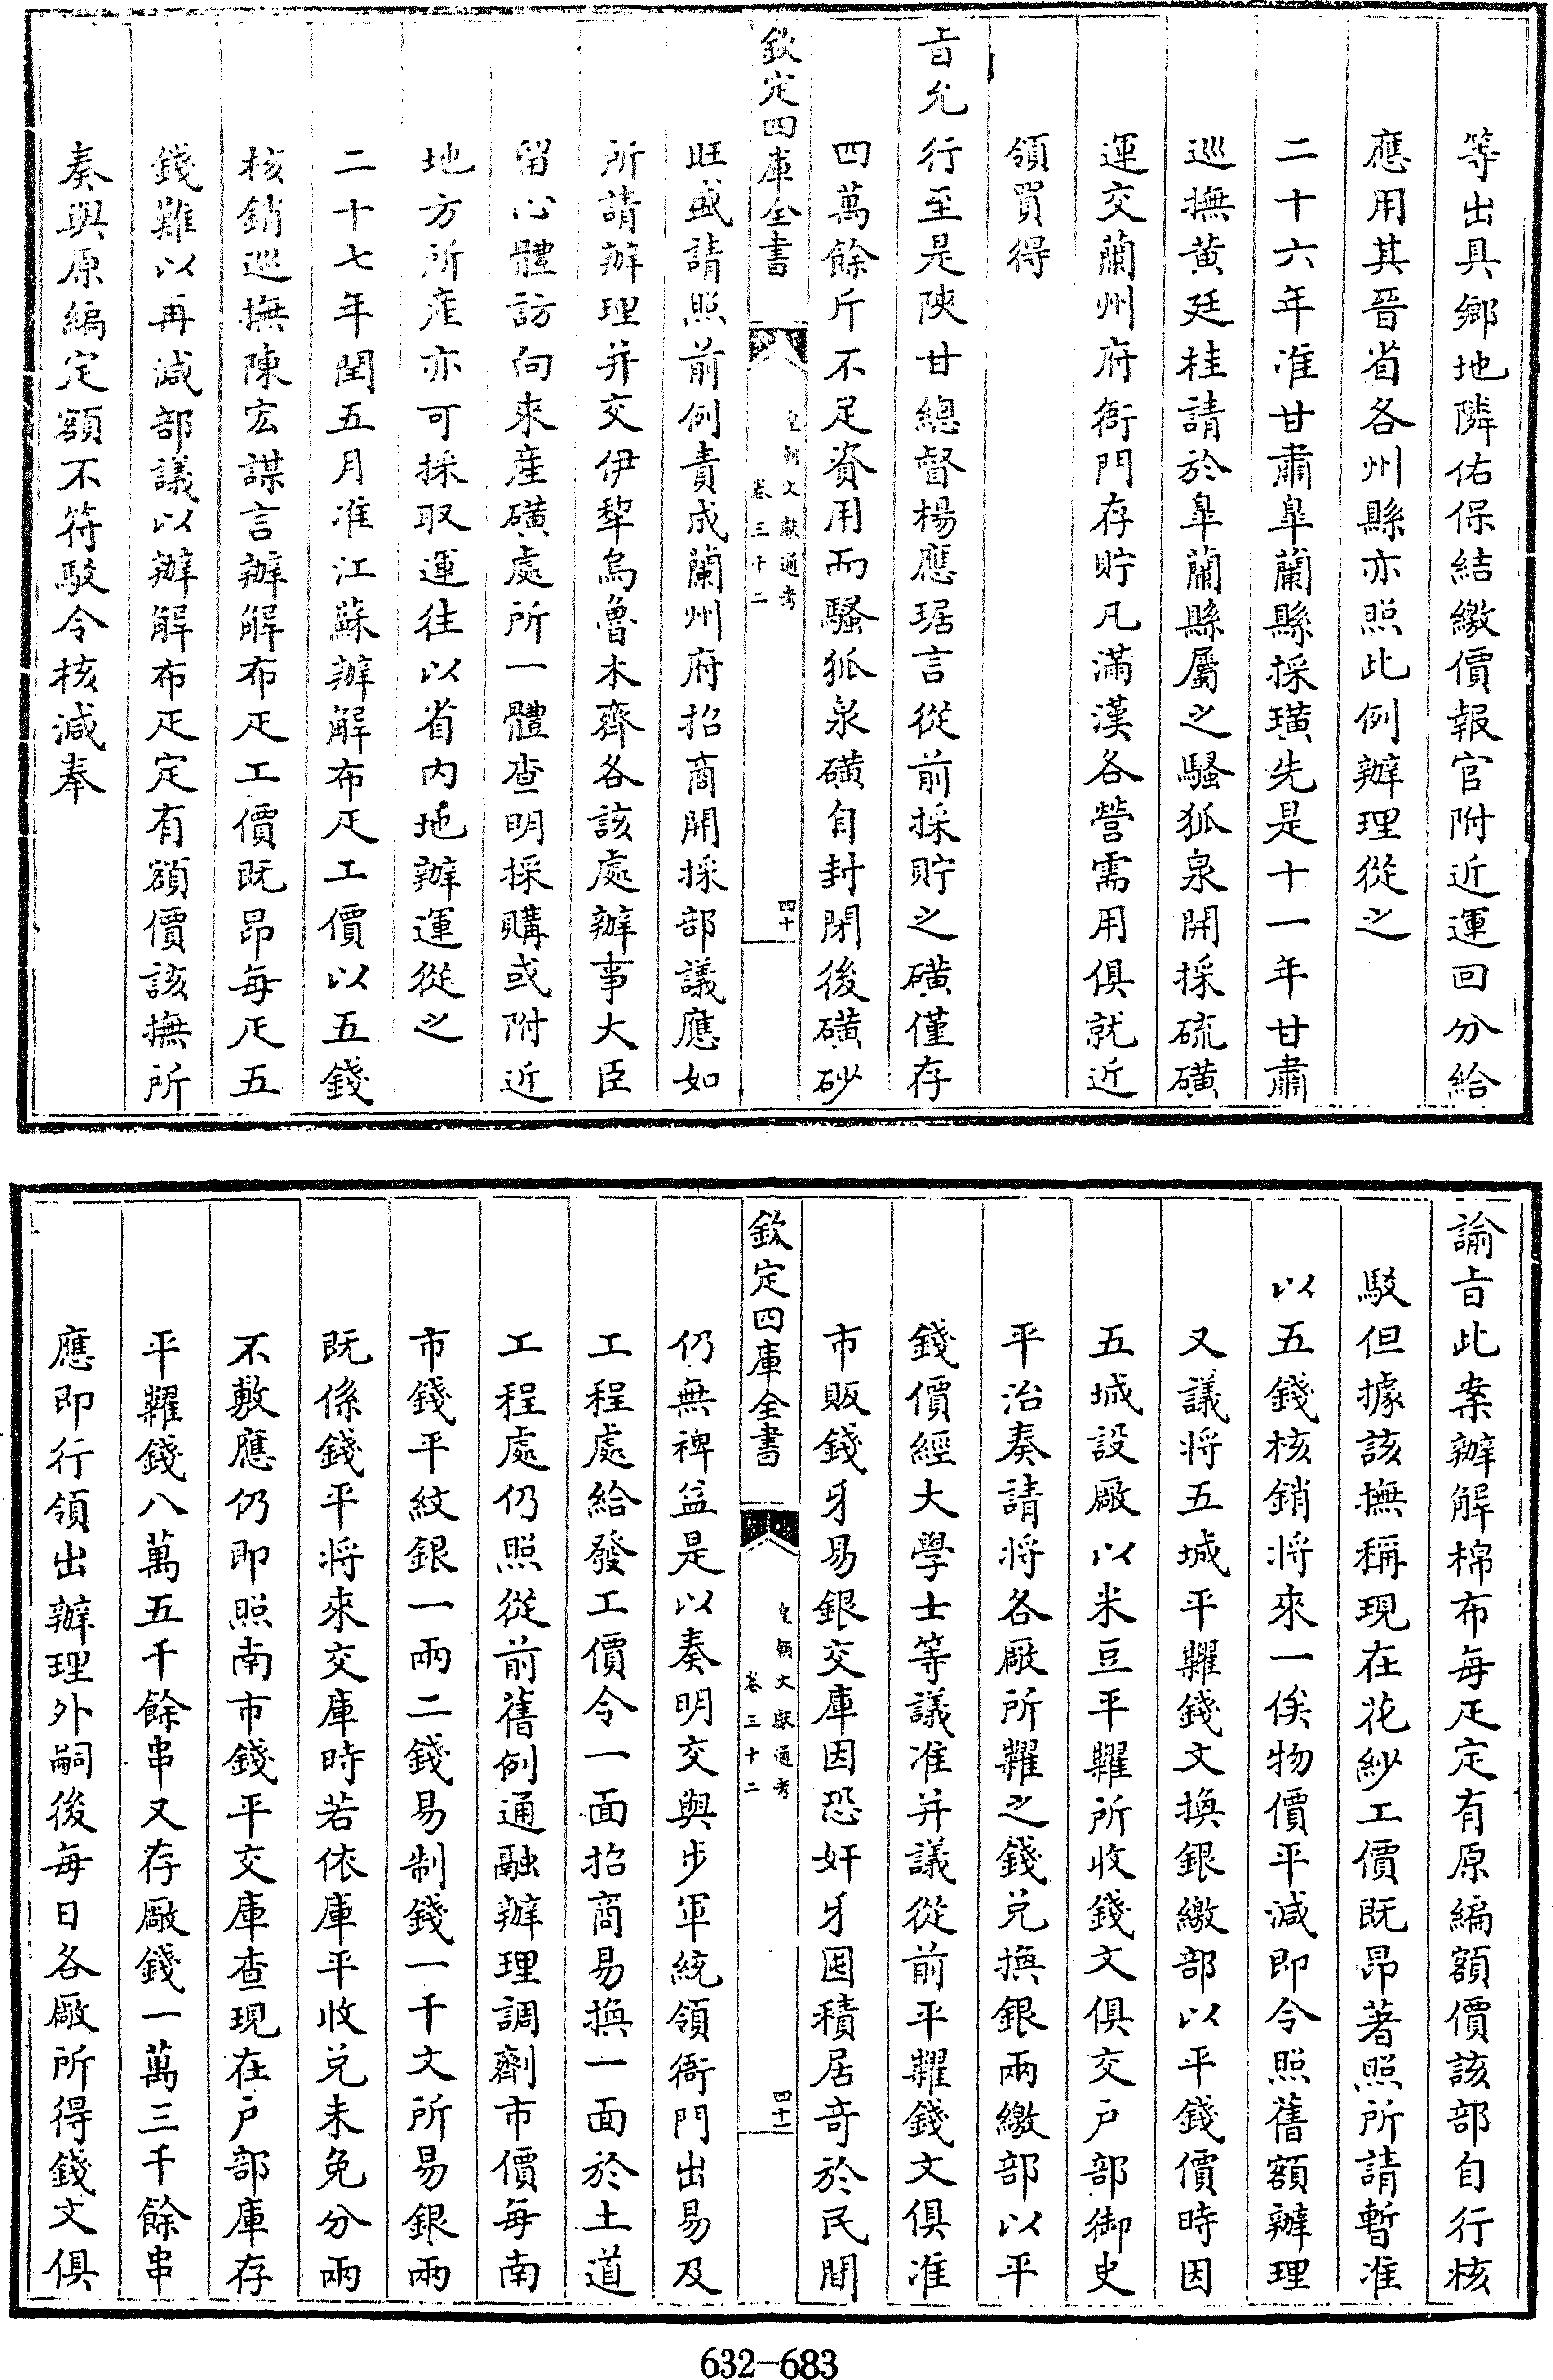 等出具鄉地隣佑保結繳價報官附近運回分給
應用其晉省各州縣亦照此例辦理從之
二十六年准甘肅臯蘭縣採璜先是十一年甘肅
巡撫黄廷桂請於臯蘭縣屬之騷狐泉開採硫磺
運交蘭州府衙門存貯凡滿漢各營需用俱就近
領買得
㫖允行至是陜甘總督楊應琚言從前採貯之磺僅存
四萬餘斤不足資用而騷狐泉磺自封閉後磺砂
欽定四庫全書
皇朝文獻通考
卷三十二
四十
旺盛請照前例責成蘭州府招商開採部議應如
所請辦理并交伊犂烏魯木齊各該處辦事大臣
留心體訪向來產磺處所一體查明採購或附近
地方所產亦可採取運往以省内地辦運從之
二十七年閏五月准江蘇辦解布疋工價以五錢
核銷巡撫陳宏謀言辦解布疋工價既昂每疋五
錢難以再減部議以辦解布疋定有額價該撫所
奏與原編定額不符駁令核減奉
諭㫖此案辦解棉布每疋定有原編額價該部自行核
駁但據該撫稱現在花紗工價既昂著照所請暫准
以五錢核銷将來一俟物價平減即令照舊額辦理
又議将五城平糶錢文換銀繳部以平錢價時因
五城設厰以米豆平糶所收錢文俱交户部御史
平治奏請将各厰所糶之錢兑換銀兩繳部以平
錢價經大學士等議准并議從前平糶錢文俱准
市販錢牙易銀交庫因恐奸牙囤積居奇於民間
欽定四庫全書
皇朝文獻通考
卷三十二
四十一
仍無裨益是以奏明交與步軍統領衙門出易及
工程處給發工價令一面招商易換一面於土道
工程處仍照從前舊例通融辦理調劑市價每南
市錢平紋銀一兩二錢易制錢一千文所易銀兩
既係錢平将來交庫時若依庫平收兑未免分兩
不敷應仍即照南市錢平交庫查現在户部庫存
平糶錢八萬五千餘串又存厰錢一萬三千餘串
應即行領出辦理外嗣後每日各厰所得錢文俱
632-683